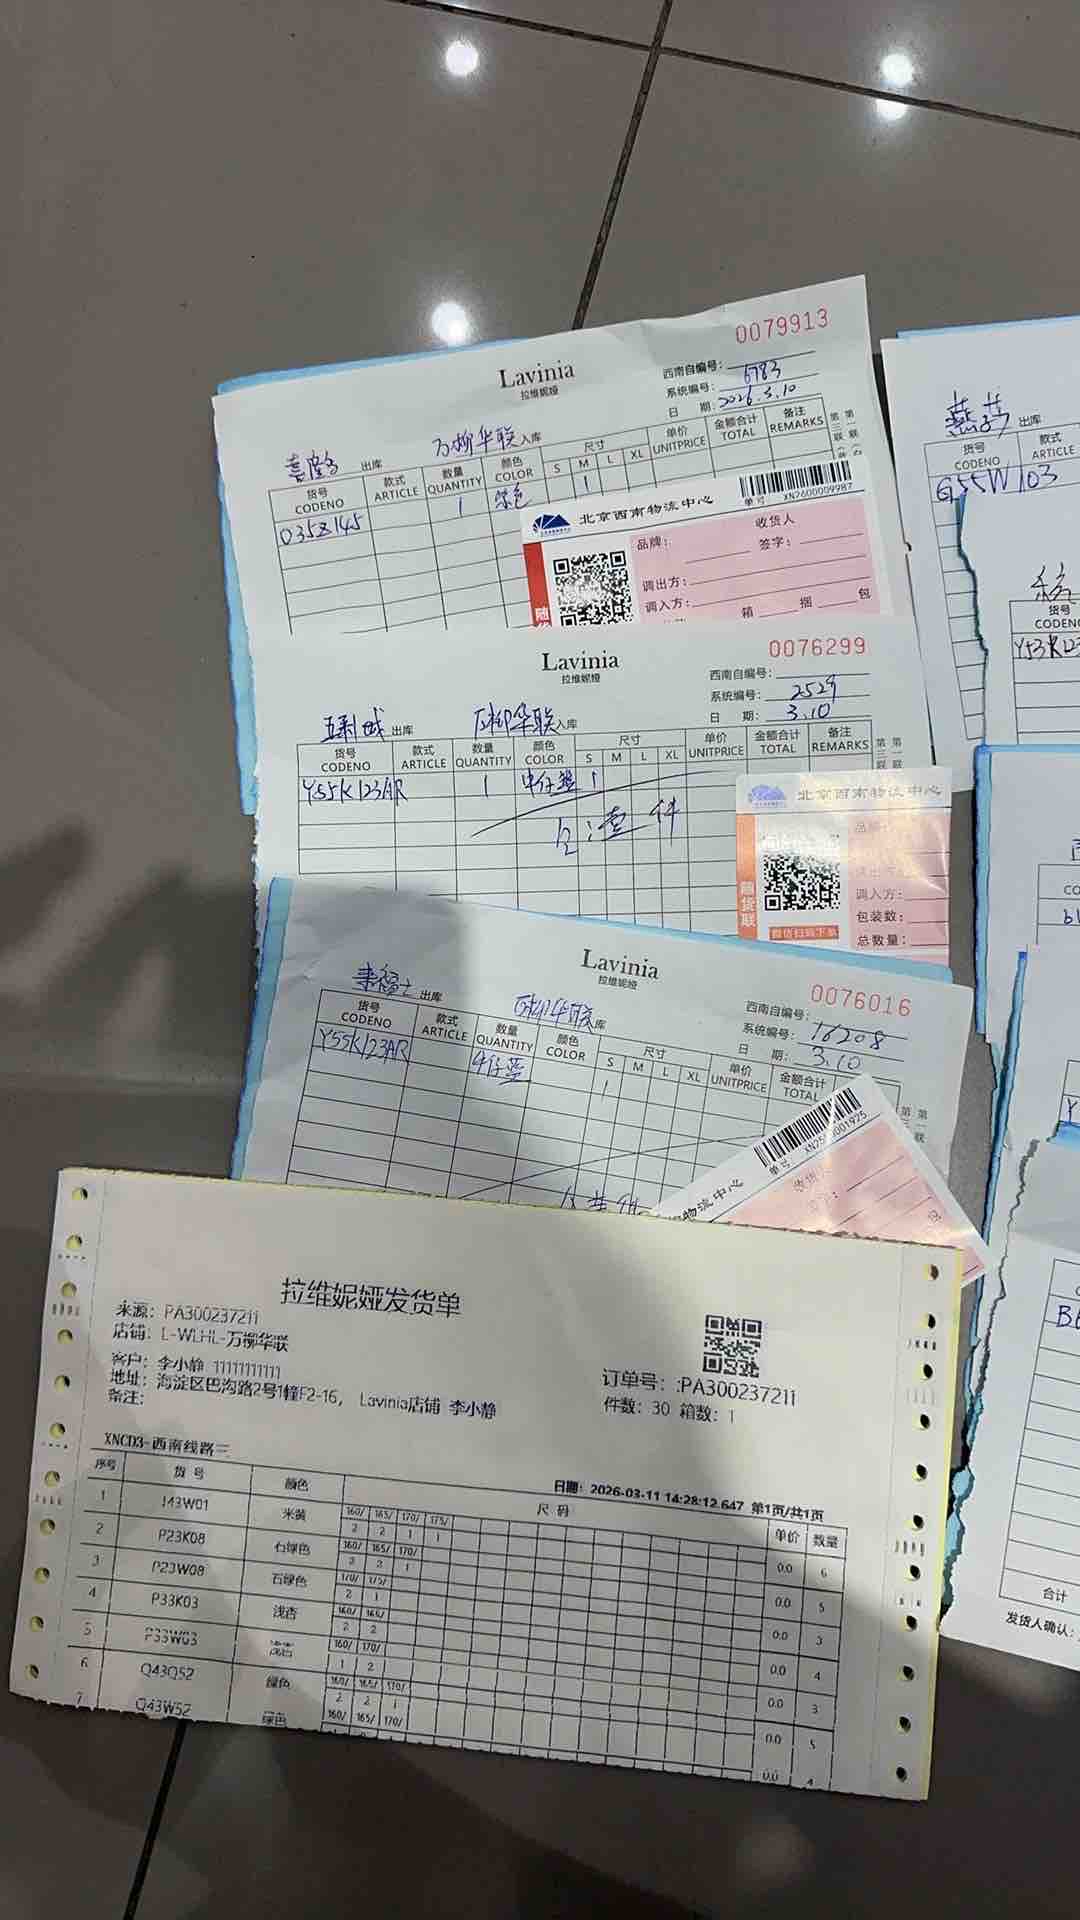 0079913
Lavinia
拉维妮娅
西南自编号：
系统编号：6783
日 期：2026.3.10
出库 万柳华联入库
货号 CODENO
款式 ARTICLE
数量 QUANTITY
颜色 COLOR
尺寸
S M L XL
单价 UNITPRICE
金额合计 TOTAL
备注 REMARKS
1 1
北京西南物流中心
单号 XN2600009987
品牌：
收货人
签字：
调出方：
调入方：
箱 捆 包
0076299
Lavinia
拉维妮娅
西南自编号：
系统编号：2529
日 期：3.10
出库 万柳华联入库
货号 CODENO
款式 ARTICLE
数量 QUANTITY
颜色 COLOR
尺寸
S M L XL
单价 UNITPRICE
金额合计 TOTAL
备注 REMARKS
Y55K123AR 1 牛仔蓝 1
北京西南物流中心
随货联
调入方：
包装数：
总数量：
微信扫码下单
0076016
Lavinia
拉维妮娅
西南自编号：
系统编号：16208
日 期：3.10
出库 万柳华联库
货号 CODENO
款式 ARTICLE
数量 QUANTITY
颜色 COLOR
尺寸
S M L XL
单价 UNITPRICE
金额合计 TOTAL
Y55K123AR 牛仔蓝 1
物流中心
单号
拉维妮娅发货单
来源：PA300237211
店铺：L-WLHL-万柳华联
客户：李小静 11111111111
地址：海淀区巴沟路2号1幢F2-16，Lavinia店铺 李小静
备注：
订单号：:PA300237211
件数：30 箱数：1
XNCD3-西南线路三
日期：2026-03-11 14:28:12.647 第1页/共1页
序号 货号 颜色 尺码 单价 数量
1 J43W01 米黄 160/ 165/ 170/ 175/ 0.0 6
2 2 1 1
2 P23K08 石绿色 160/ 165/ 170/ 0.0 5
2 2 1
3 P23W08 石绿色 170/ 175/ 0.0 3
2 1
4 P33K03 浅杏 160/ 165/ 0.0 4
2 2
5 P33W03 浅杏 160/ 170/ 0.0 3
1 2
6 Q43Q52 绿色 160/ 165/ 170/ 0.0 5
2 2 1
7 Q43W52 绿色 160/ 165/ 170/ 0.0 4
出库
货号 CODENO
款式 ARTICLE
G55W103
货号
CODENO
合计
发货人确认：